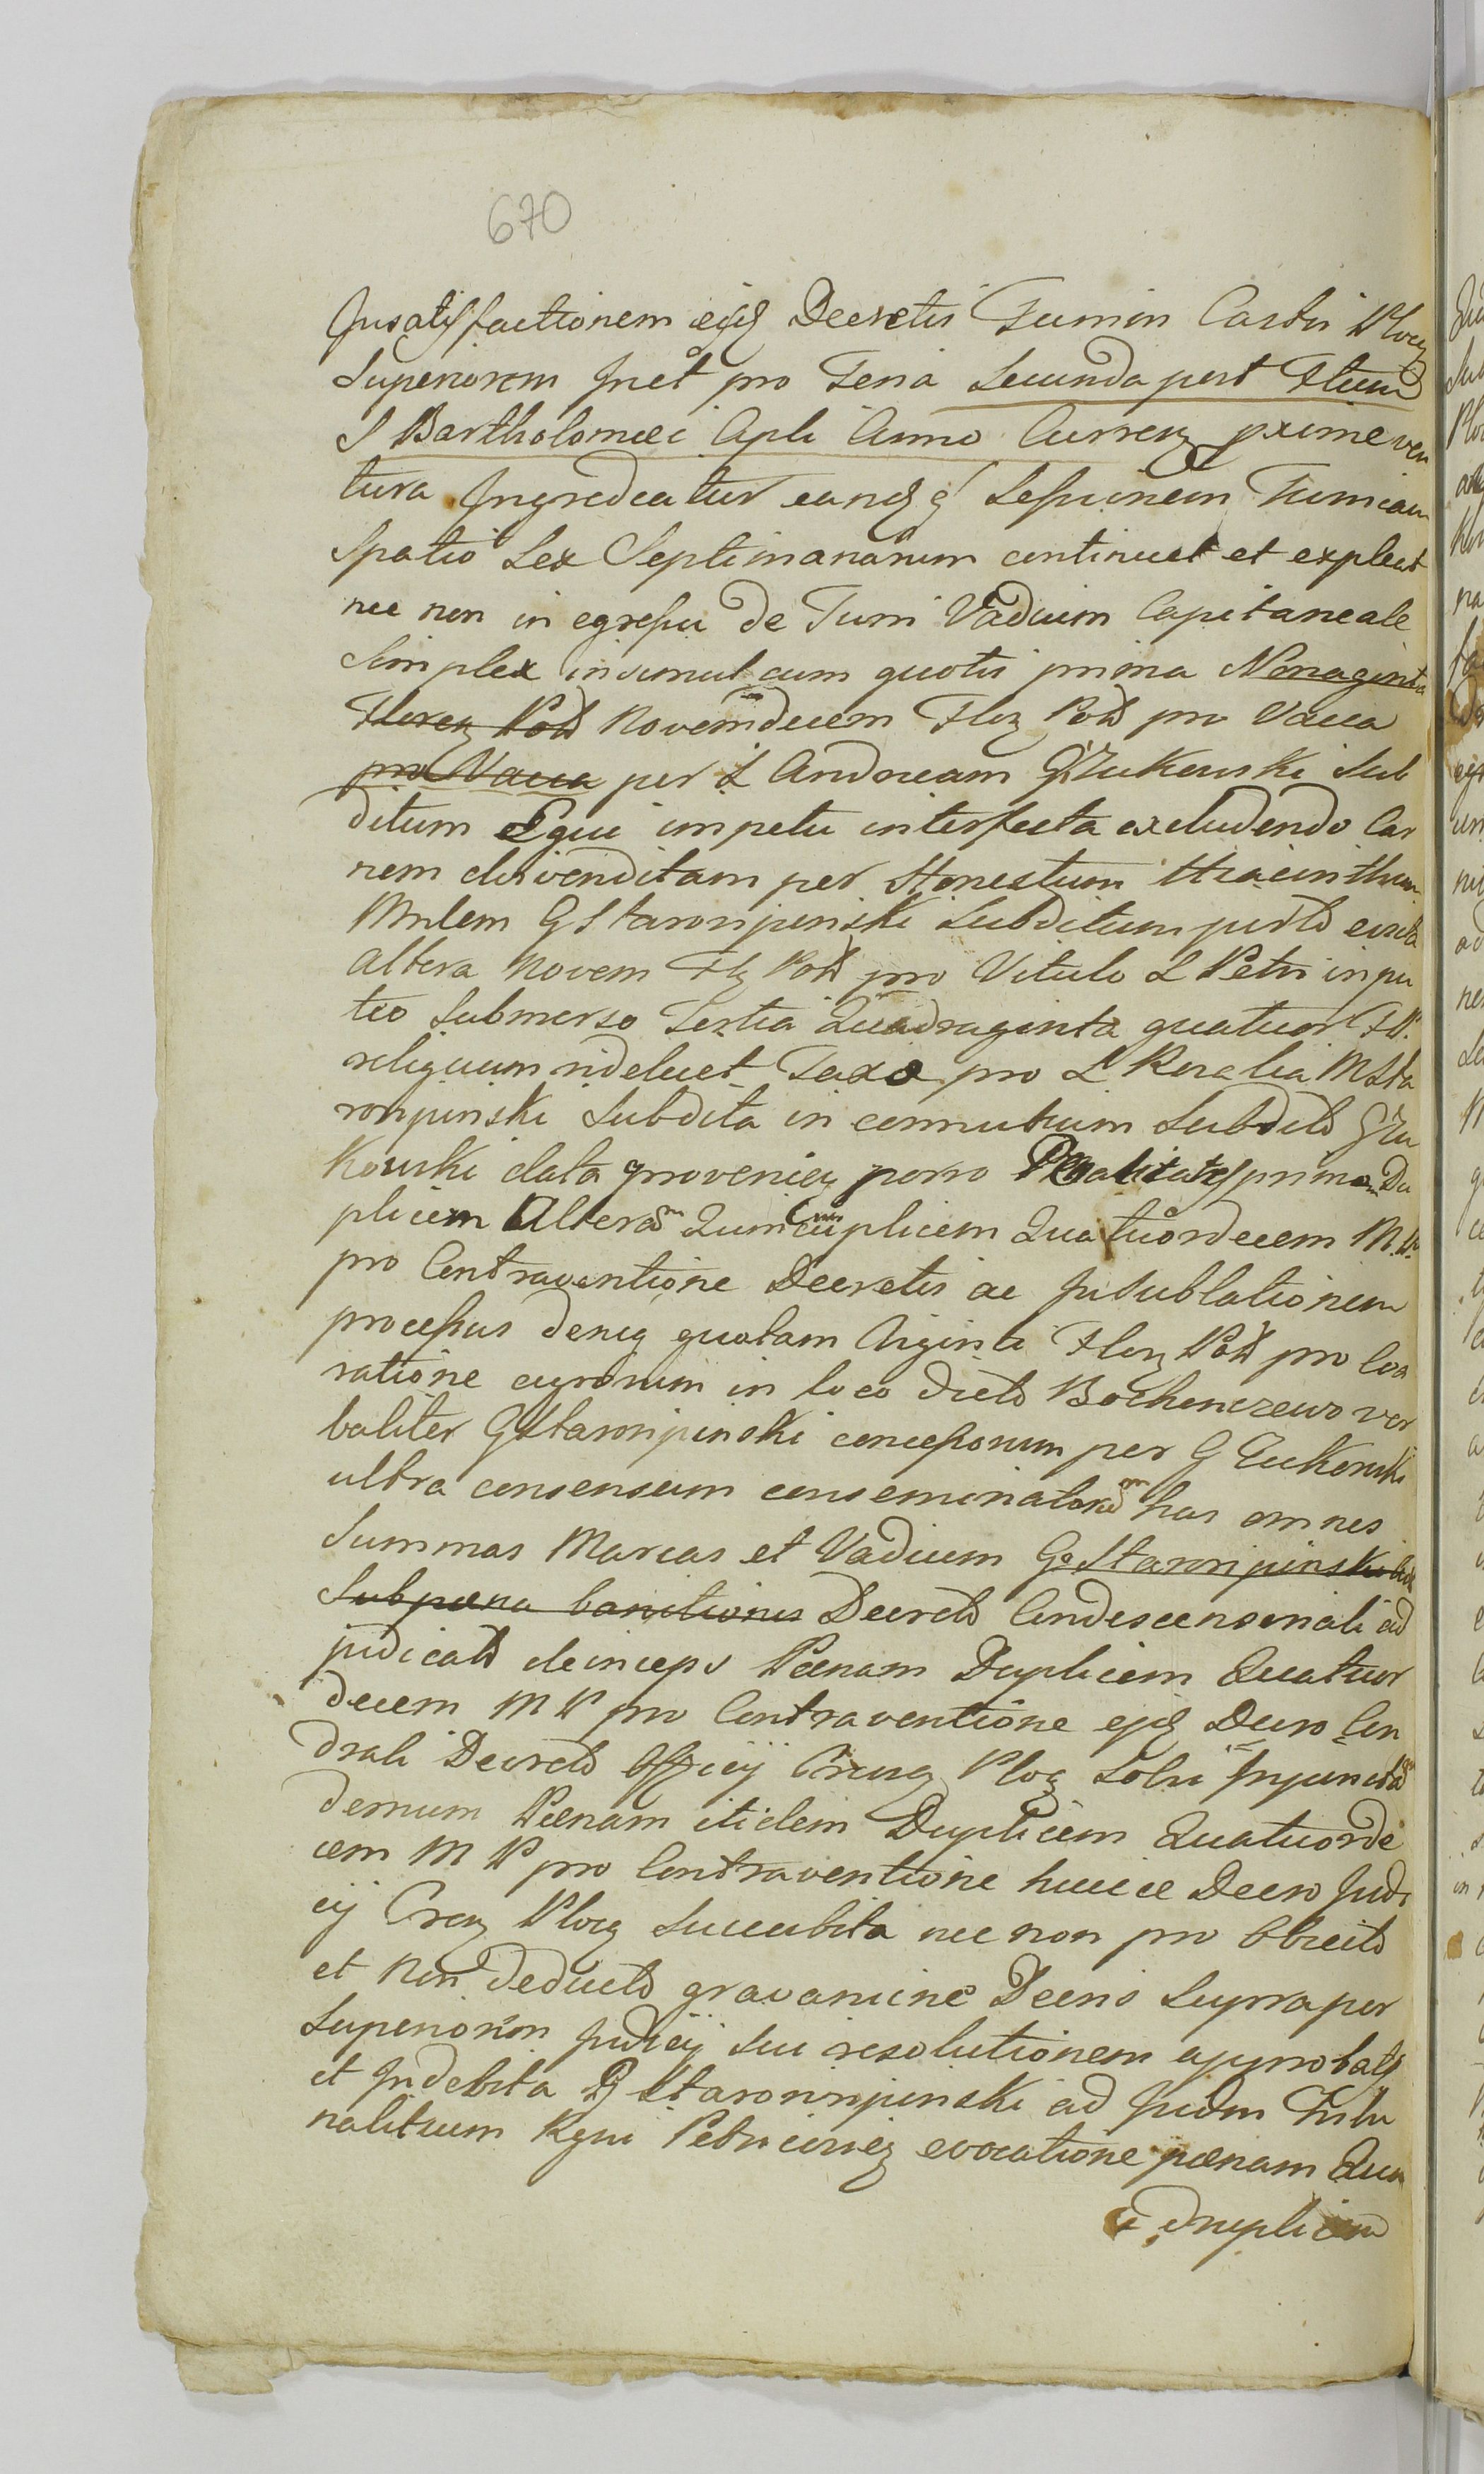 670
Insatisfactionem ejsd Decretis Turrim Castri Plocen
Superiorem Inet pro Feria Secunda post Ftum
S Bartholomaei Apli Anno Curren proxime ven
tura Ingrediatur eandq Sessionem Turrium
Spatio Sex Septimanarum continuet et expleat
nec non in egressu de Turri Vadium Capitaneale
Simplex insimul cum quotis prima Nonaginta
Floren Pold Novemdecem Flor Pold pro Vacca
pro Vacca per L Andream G Zukowski Sub
ditum Equi impetu interfecta excludendo Car
nem divenditam per Honestum Hiacinthum
Mnlem G Staroripinski Subditum
altera Novem Fl Pold pro Vitulo L Petri in pu
teo Submerso Tertia Quadraginta quatuor F P.
reliquum videlicet Taxa pro L Rosalia M Sta
roripinski Subdita in connubium Subdito G Zu
kowski data provenien porro Paenalitates primam Du
plicem Alteram Quincuplicem Quatuordecem M. P.
pro Contraventione Decretis ac Insublationem
processus deniq quotam Viginti Flor Pold pro
ratione agrorum in loco dicto Bochenczewo ver
baliter G Staroripinski concessorum per G Zukowski
ultra consensum conseminatorum has omnes
Summas Marcas et Vadium G Staroripinski
Sub paena banitionis Decreto Condescensionali ad
judicato deinceps Paenam Duplicem Quatuor
decem M P pro Contraventione ejsd Decro Con
drali Decreto Officij Crensq Ploc Solvi Injunctam
demum Paenam itidem Duplicem Quatuorde
cem M P pro Contraventione huicce Decro Judi
cij Cren Plocen Succubita nec non pro Obiecto
et Non deducto gravamine Decris Supra per
Superiorem Judicij Sui resolutionem approbatis
et Indebita G Staroripinski ad Judm Tribu
nalitium Regni Petricovien evocatione paenam Qua
druplicem